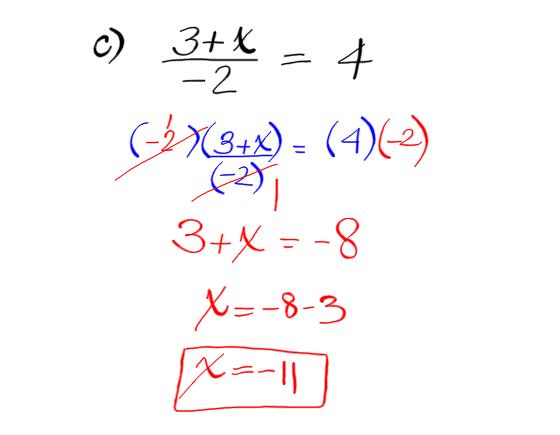 c) (3+x)/-2 = 4
(-2)((3+x)/(-2)) = (4)(-2)
1 1
3+x = -8
x = -8-3
x = -11